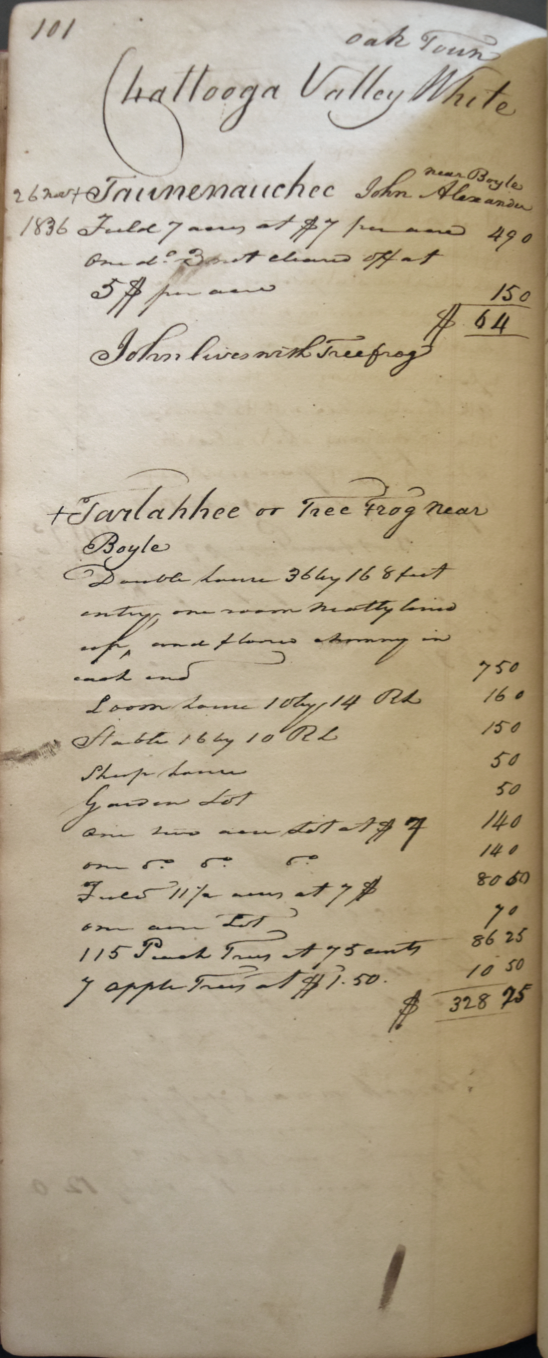 101
oak Town
Chattooga Valley White
near Boyle
26 Nov + Taunenauchee John Alexander
1836 Field 7 acres at $7 per acre 490
One do 3 not cleared off at
5$ per acre 150
$ 64
John lives with Treefrog
+ Tarlahhee or Tree Frog near
Boyle
Double house 36 by 16 8 feet
entry, one room neatly lined
up, and floored chimney in
each end 750
Loom house 10 by 14 RL 160
Stable 16 by 10 RL 150
Sheep house 50
Garden Lot 50
One two acre Lot at $ 7 140
one do do do 140
Field 11 1/2 acres at 7 $ 80 50
one acre Lot 70
115 Peach Trees at 75 cents 86 25
7 apple Trees at $1.50. 10 50
$ 328 75